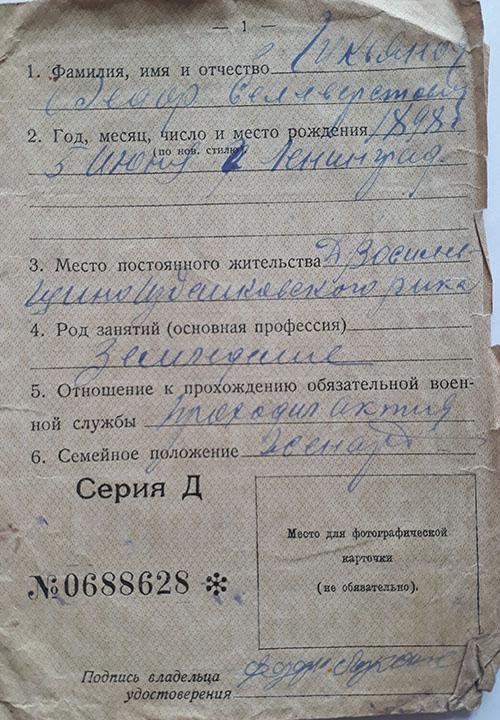 — 1 —
1. Фамилия, имя и отчество
Федор Селиверстович
2. Год, месяц, число и место рождения 1898 г
(по нов. стилю)
5 Июня г Ленинград.
3. Место постоянного жительства Д. Василь-
щино рика
4. Род занятий (основная профессия)
Земледелие
5. Отношение к прохождению обязательной воен-
ной службы проходил
6. Семейное положение женат
Серия Д
№ 0688628 *
Место для фотографической
карточки
(не обязательно).
Подпись владельца
удостоверения